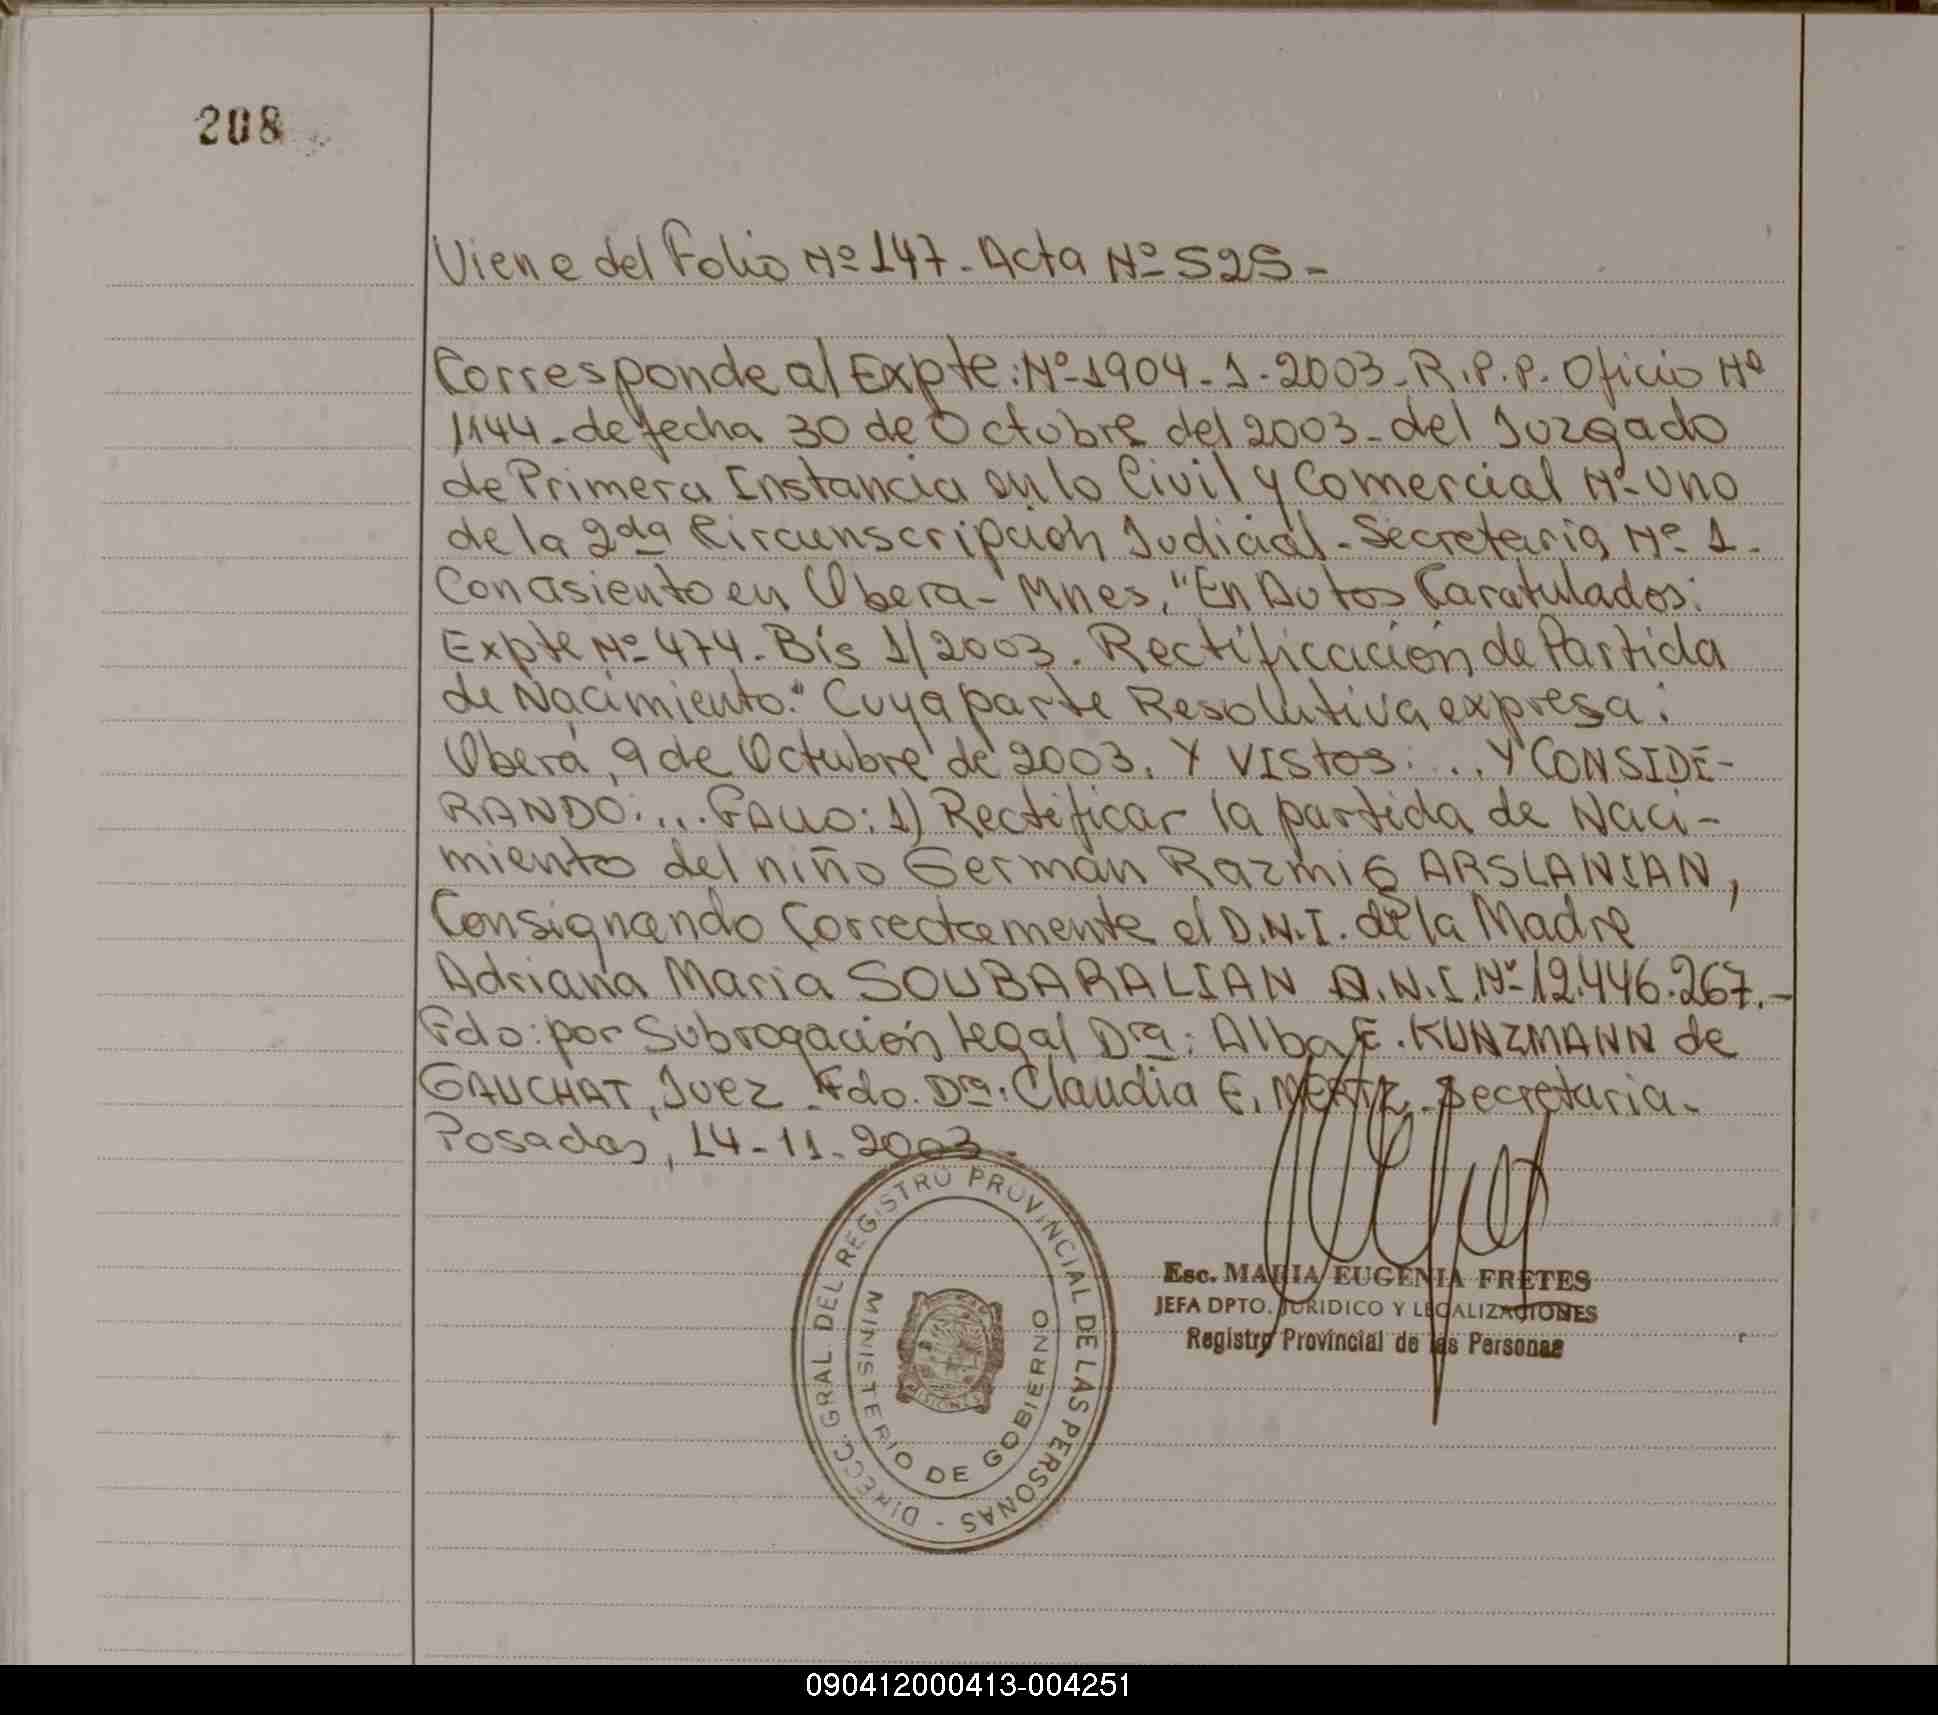 208
Viene del Folio Nº 147. Acta Nº 525-
Corresponde al Expte: Nº 1904-1-2003-R.P.P. Oficio Nº
1144-de fecha 30 de Octubre del 2003-del Juzgado
de Primera Instancia en lo Civil y Comercial Nº Uno
de la 2da Circunscripción Judicial-Secretaria Nº 1-
Con asiento en Obera-Mnes, "En Autos Caratulados:
Expte Nº 474-Bis 1/2003. Rectificación de Partida
de Nacimiento." Cuya parte Resolutiva expresa:
Oberá, 9 de Octubre de 2003. Y VISTOS: ... Y CONSIDE-
RANDO: ... FALLO: 1) Rectificar la partida de Naci-
miento del niño Germán Razmig ARSLANIAN,
Consignando Correctamente el D.N.I. de la Madre
Adriana Maria SOUBARALIAN D.N.I. Nº 12.446.267.-
Fdo: por Subrogación legal Dra: Alba E. KUNZMANN de
GAUCHAT, Juez. Fdo. Dra. Claudia E. Secretaria-
Posadas, 14-11-2003-
DIRECC. GRAL. DEL REGISTRO PROVINCIAL DE LAS PERSONAS -
MINISTERIO DE GOBIERNO
MISIONES
Esc. MARIA EUGENIA FRETES
JEFA DPTO. JURIDICO Y LEGALIZACIONES
Registro Provincial de las Personas
090412000413-004251